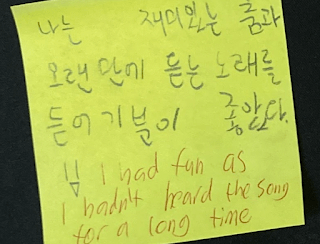 나는 재미있는 춤과
오랜만에 듣는 노래를
들어 기분이 좋았다.
I had fun as
I hadn't heard the song
for a long time